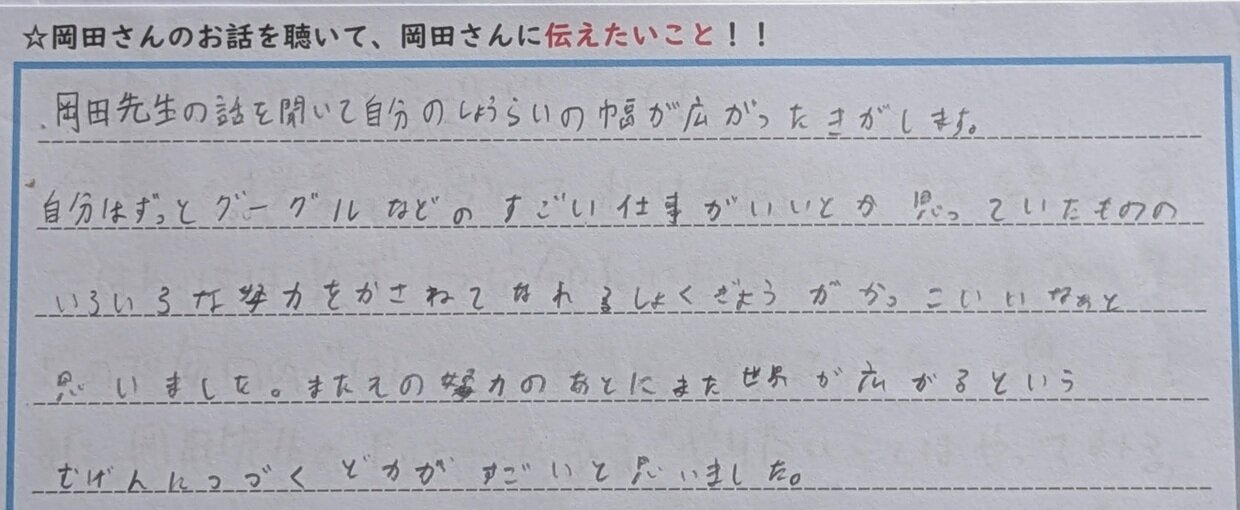 ☆岡田さんのお話を聴いて、岡田さんに伝えたいこと！！
岡田先生の話を聞いて自分のしょうらいの幅が広がったきがします。
自分はずっとグーグルなどのすごい仕事がいいとか思っていたものの
いろいろな努力をかさねてなれるしょくぎょうがかっこいいなぁと
思いました。またその努力のあとにまた世界が広がるという
むげんにつづくどかがすごいと思いました。